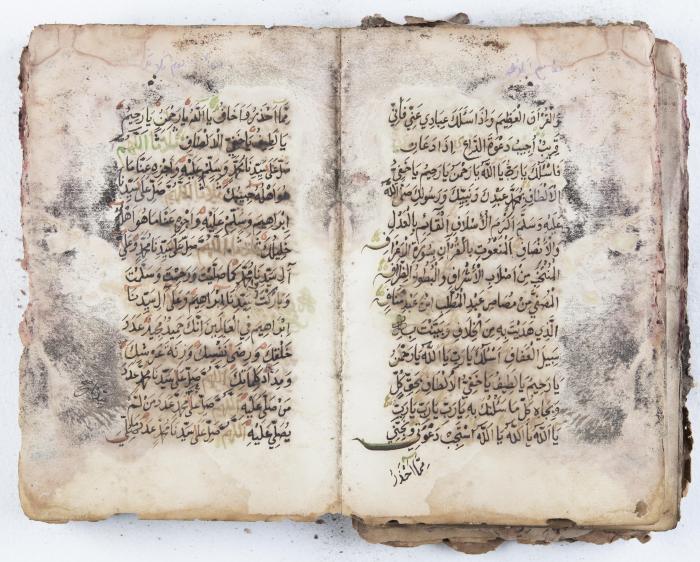 والقرآن العظيم واذا سئلك عبادي عني فاني
قريب اجيب دعوة الداع اذا دعان
فاسئلك يا رب يا الله يا رحمن يا رحيم يا خفي
الالطاف محمد عبدك ونبيك ورسولك صلى الله
عليه وسلم اكرم الاسلاف القائم بالعدل
والانصاف المنعوت بالقرآن بسورة الاعراف
المنتخب من اصلاب الاشراف والبطون الظراف
المصفى من مصاص عبد المطلب ابن عبد مناف
الذي هديت به من الخلاف وبينت به
سبيل العفاف اسئلك يا رب يا الله يا رحمن
يا رحيم يا لطيف يا خفي الالطاف بحق كل
وبجاه كل ما سئلتك به يا رب يا رب يا رب
يا الله يا الله يا الله استجب دعوتي ونجني
مما احذر
مما احذر واخاف يا الله يا رحمن يا رحيم
يا لطيف يا خفي الالطاف ثلاثا اللهم
صل على سيدنا محمد وسلم عليه واجزه عنا ما
هو اهله حبيبك صل على سيدنا
ابراهيم وسلم عليه واجزه عنا ما هو اهله
خليلك صل على سيدنا محمد وعلى
آل سيدنا محمد كما صليت ورحمت وسلمت
وباركت على سيدنا ابراهيم وعلى آل سيدنا
ابراهيم في العالمين انك حميد مجيد عدد
خلقك ورضى نفسك وزنة عرشك
ومداد كلماتك صل على سيدنا محمد عدد
من صلى عليه صل على سيدنا محمد عدد من لم
يصل عليه صل على سيدنا محمد عدد ما صلي